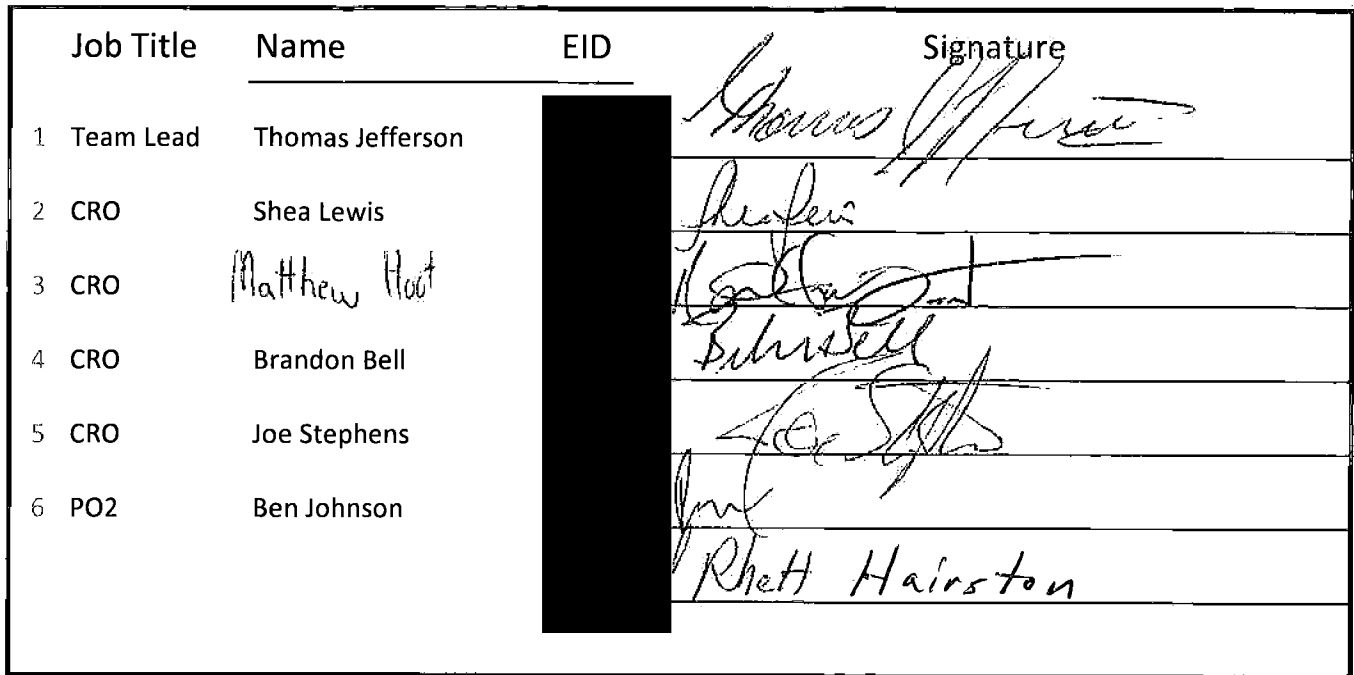 Job Title Name EID Signature
1 Team Lead Thomas Jefferson Thomas Jefferson
2 CRO Shea Lewis Shea Lewis
3 CRO Matthew
4 CRO Brandon Bell Bell
5 CRO Joe Stephens Joe
6 PO2 Ben Johnson
Rhett Hairston